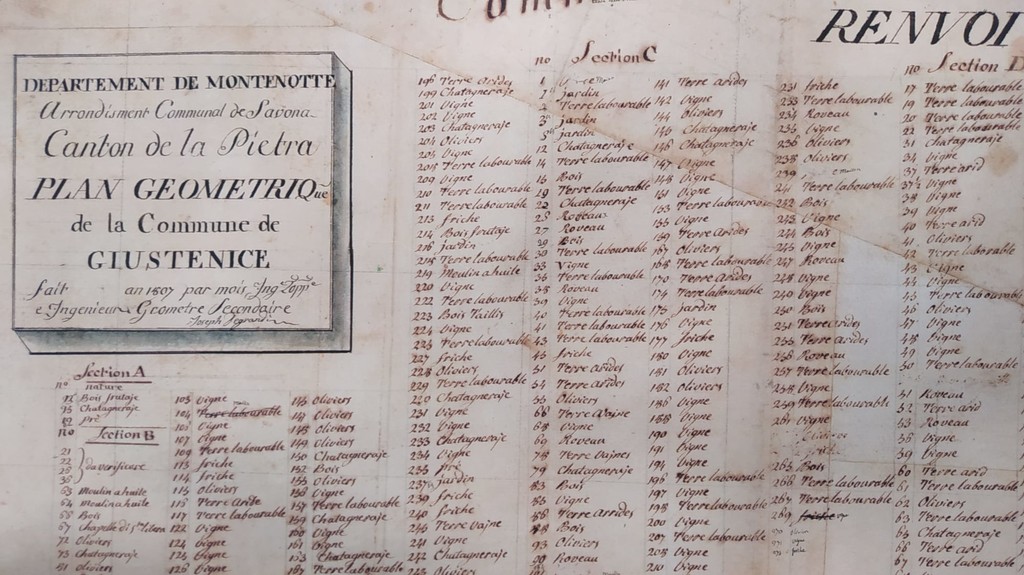 RENVOI
DEPARTEMENT DE MONTENOTTE
Arrondisment Communal de Savona
Canton de la Pietra
PLAN GEOMETRIQue
de la Commune de
GIUSTENICE
fait an 1807 par mois Ing
e Ingenieur Geometre Secondaire
Joseph
Section A
no nature
Bois futaje
Chatagneraje
pré
no Section B
21
da verificare
63 Moulin a huile
64 Moulin a huile
Bois
67 Chapelle di
72 Oliviers
73 Chatagneraje
81 Oliviers
105 Vigne
Terre labourable
Vigne
107 Vigne
109 Terre labourable
113 friche
114 friche
115 Oliviers
116 Terre Aride
117 Terre labourable
122 Vigne
124 Vigne
126 Vigne
Oliviers
Oliviers
148 Oliviers
149 Oliviers
150 Chatagneraje
152 Bois
Oliviers
Vigne
157 Terre labourable
159 Chatagneraje
160 Vigne
161 Vigne
Chatagneraje
167 Terre labourable
196 Terre arides
199 Chatagneraje
201 Vigne
202 Vigne
203 Chatagneraje
204 Oliviers
205 Vigne
Terre labourable
209 Vigne
210 Terre labourable
211 Terre labourable
213 friche
214 Bois foutaje
jardin
218 Terre labourable
219 Moulin a huile
220 Vigne
222 Terre labourable
223 Bois Taillis
224 Vigne
Terre labourable
227 friche
228 Oliviers
229 Terre labourable
Chatagneraje
231 Vigne
232 Vigne
233 Chatagneraje
234 Vigne
pré
237 jardin
239 friche
240 friche
Terre Vajne
241 Vigne
242 Chatagneraje
Oliviers
no Section C
1
jardin
2 Terre labourable
jardin
jardin
12 Chatagneraje
14 Terre labourable
16 Bois
Terre labourable
Chatagneraje
25 Roveau
27 Roveau
Bois
Terre labourable
Vigne
Roveau
39 Vigne
40 Vigne
41 Terre labourable
43 Terre labourable
45 friche
51 Terre arides
54 Terre arides
Oliviers
Terre Vajne
Vigne
69 Roveau
78 Terre Vajnes
79 Chatagneraje
83 Bois
Vigne
Terre Arides
Bois
Oliviers
Roveau
141 Terre arides
142 Vigne
144 Oliviers
145 Chatagneraje
146 Chatagneraje
147 Vigne
148 Vigne
151 Vigne
153 Terre labourable
155 Vigne
159 Terre Arides
167 Oliviers
168 Terre labourable
170 Terre Arides
174 Terre labourable
175 jardin
176 Vigne
177 friche
180 Vigne
181 Oliviers
182 Oliviers
186 Vigne
188 Vigne
190 Vigne
191 Vigne
194 Vigne
196 Terre labourable
197 Vigne
200 Vigne
207 Terre labourable
210 Vigne
231 friche
233 Terre labourable
234 Roveau
235 Vigne
236 Oliviers
238 Oliviers
239
241 Terre labourable
242 Bois
243 Vigne
244 Bois
245 Vigne
247 Roveau
248 Vigne
Vigne
250 Bois
251 Terre arides
Terre arides
Roveau
257 Terre labourable
258 Vigne
259 Terre labourable
261 Vigne
265 Bois
266 Terre labourable
267 Terre labourable
269 friche
no Section D
17 Terre labourable
19 Terre labourable
20 Terre labourable
22 Terre labourable
31 Chatagneraje
34 Vigne
37 Terre arid
Vigne
38 Vigne
39 Vigne
40 Terre arid
41 Oliviers
42 Terre laborable
43 Vigne
44 Vigne
45 Terre labourable
46 Oliviers
47 Vigne
48 Vigne
49 Vigne
50 Terre labourable
51 Roveau
52 Terre arid
53 Roveau
Vigne
Vigne
60 Terre arid
61 Terre labourable
62 Oliviers
63 Terre labourable
65 Chatagneraje
66 Terre arid
67 Terre labourable